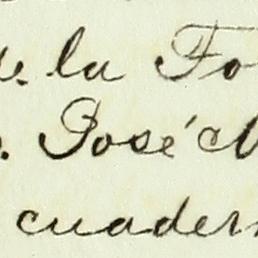 de la To
. José M
cuadern